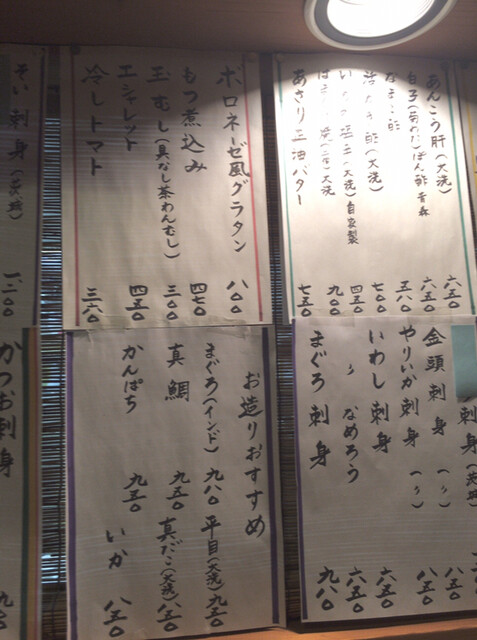 あんこう肝(大洗) 六五〇
白子(菊の花ぽん酢 青森 六五〇
なまこ酢 五八〇
(大洗) 七〇〇
(大洗)自家製 四五〇
大洗 九〇〇
あさり正油バター 七五〇
ボロネーゼ風グラタン 八〇〇
もつ煮込み 四七〇
玉むし(具なし茶わんむし) 三〇〇
エシャレット 四五〇
冷しトマト 三六〇
そい刺身(茨城) 一二〇〇
刺身(茨城)
金頭刺身(〃) 八五〇
やりいか刺身(〃) 八五〇
いわし刺身 六五〇
〃 なめろう 六五〇
まぐろ刺身 九八〇
お造りおすすめ
まぐろ(インド) 九八〇 平目(大洗) 九五〇
真鯛 九五〇 真だこ(大洗) 八五〇
かんぱち 九五〇 いか 八五〇
かつお刺身 九五〇